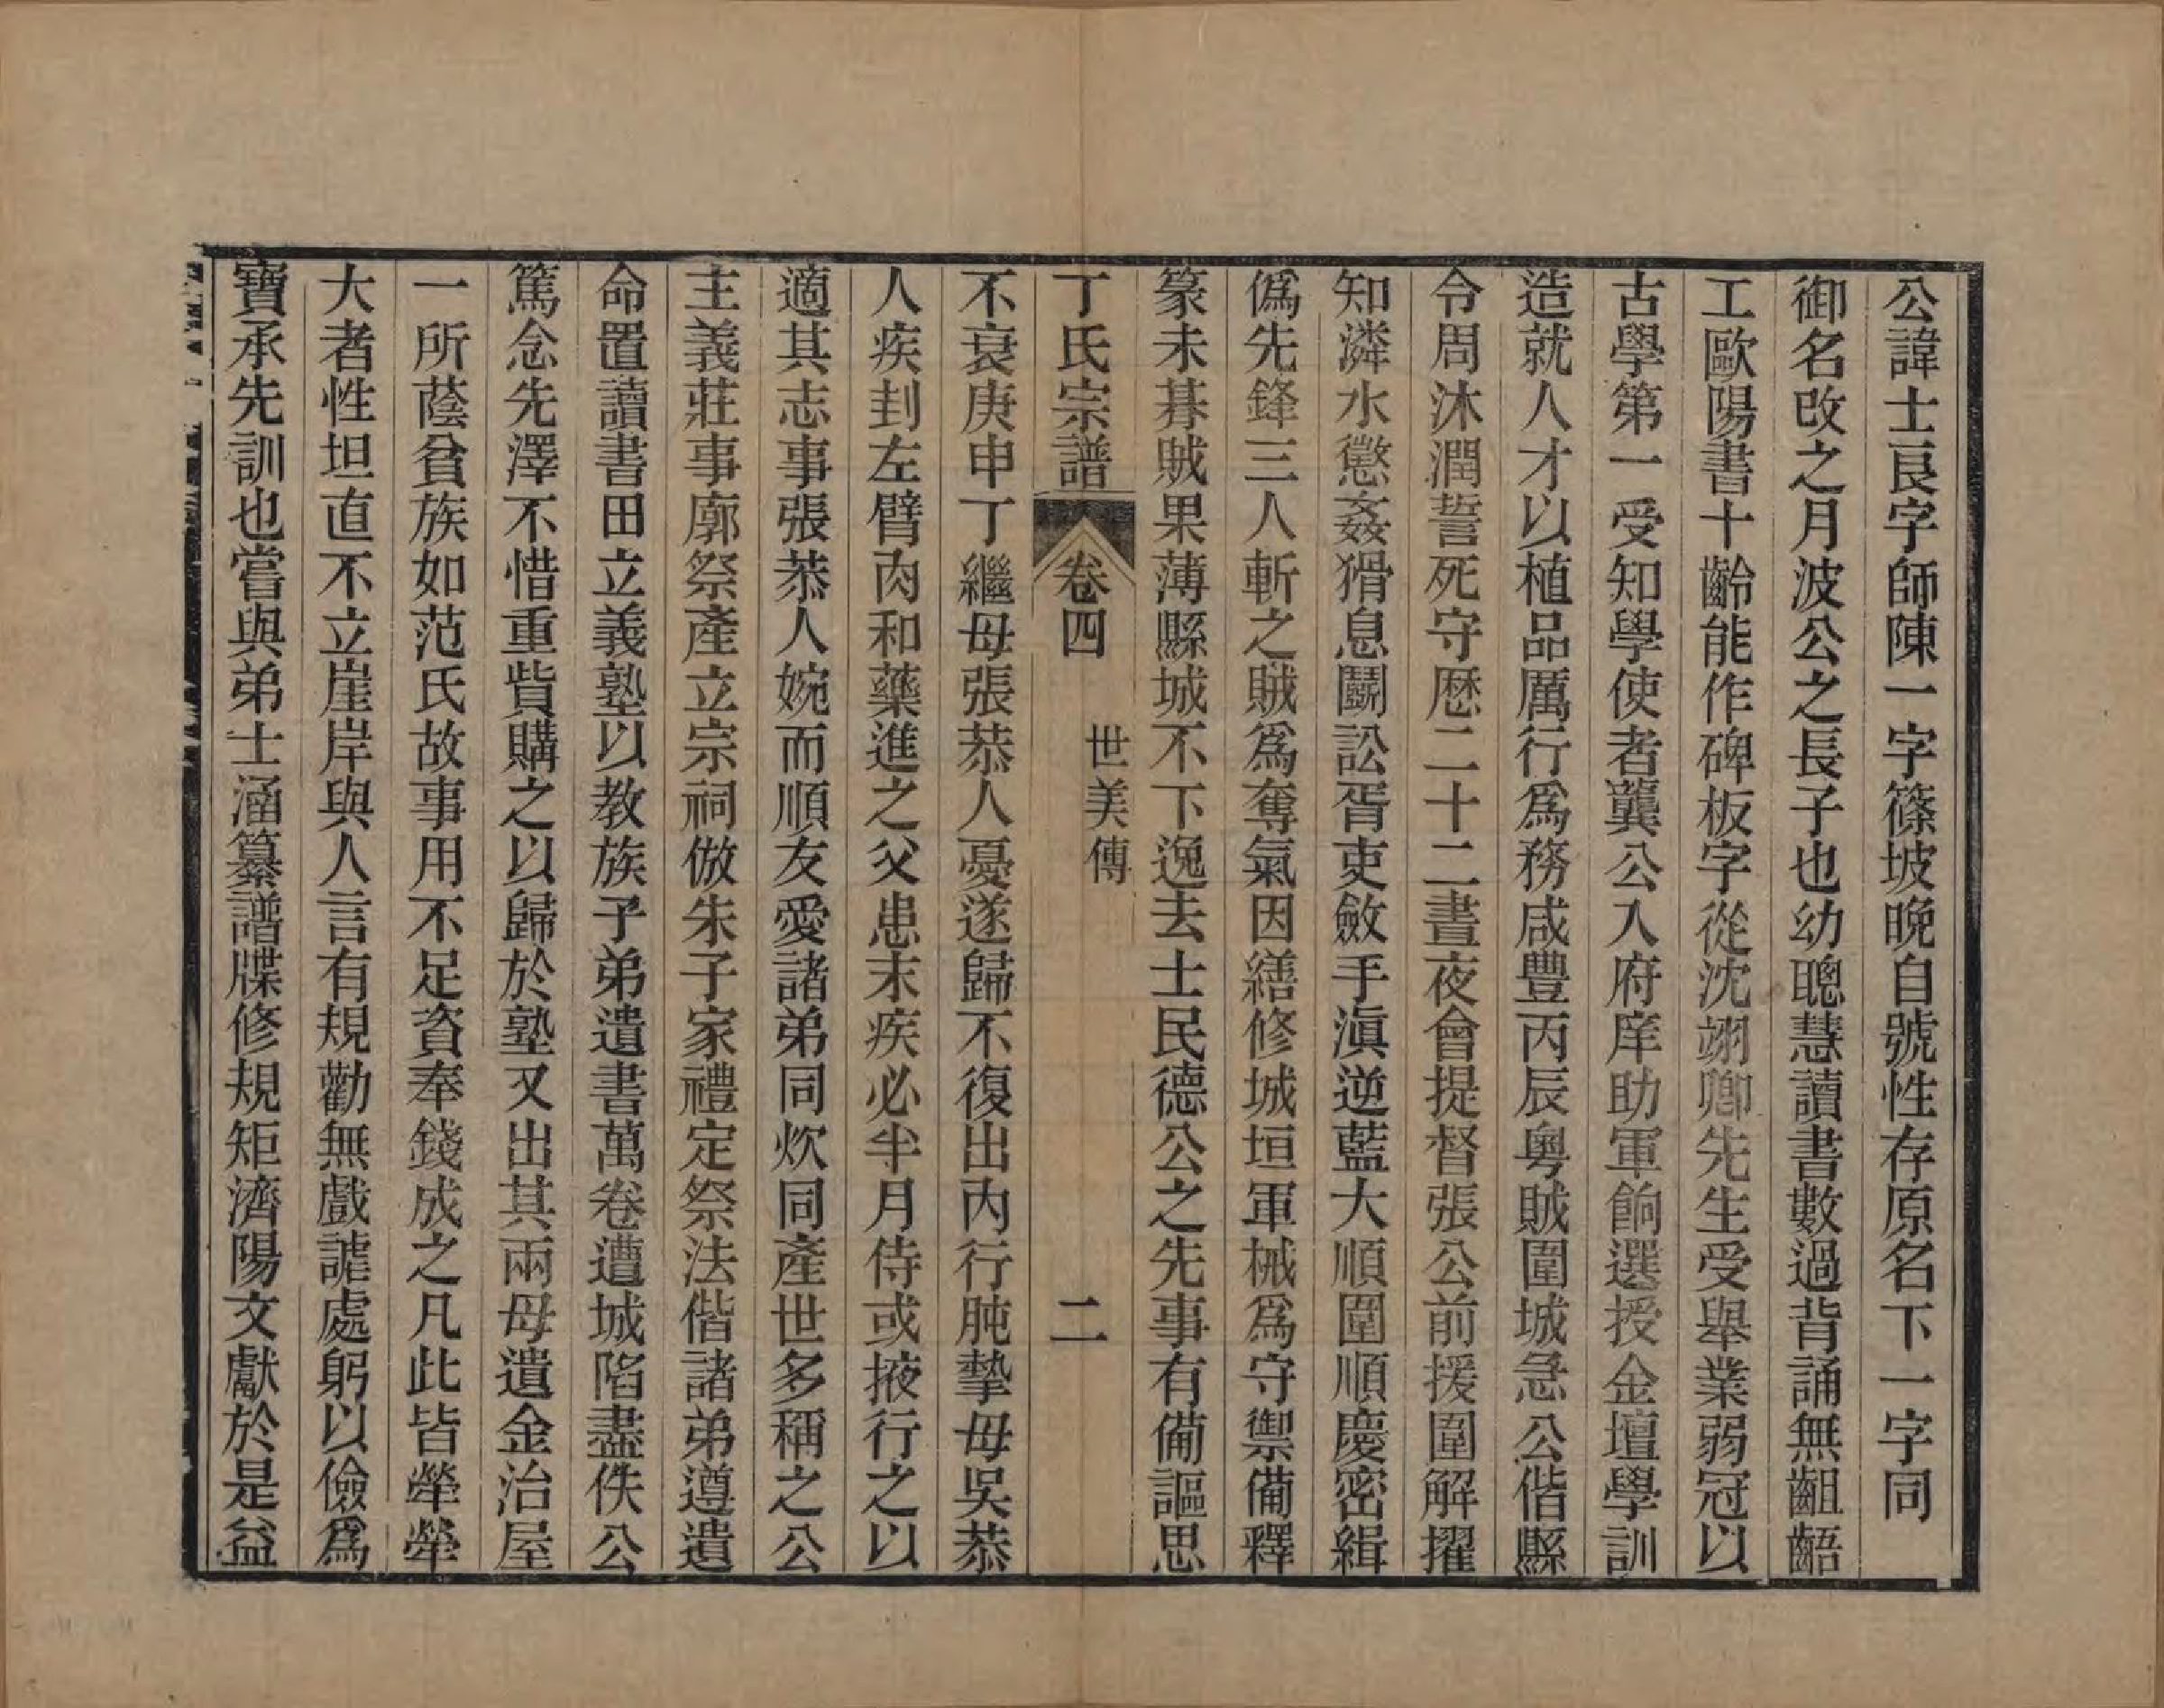 公諱士良字師陳一字篠坡晚自號性存原名下一字同
御名改之月波公之長子也幼聰慧讀書數過背誦無齟齬
工歐陽書十齡能作碑板字從沈翊卿先生受舉業弱冠以
古學第一受知學使者龔公入府庠助軍餉選授金壇學訓
造就人才以植品厲行爲務咸豐丙辰粵賊圍城急公偕縣
令周沐潤誓死守歷二十二晝夜會提督張公前援圍解擢
知潾水懲姦猾息鬭訟胥吏斂手滇逆藍大順圍順慶密緝
僞先鋒三人斬之賊爲奪氣因繕修城垣軍械爲守禦備釋
篆未朞賊果薄縣城不下逸去士民德公之先事有備謳思
丁氏宗譜 卷四 世美傳 二
不衰庚申丁繼母張恭人憂遂歸不復出內行肫摯母吳恭
人疾刲左臂肉和藥進之父患末疾必半月侍或掖行之以
適其志事張恭人婉而順友愛諸弟同炊同產世多稱之公
主義莊事廓祭產立宗祠倣朱子家禮定祭法偕諸弟遵遺
命置讀書田立義塾以教族子弟遺書萬卷遭城陷盡佚公
篤念先澤不惜重貲購之以歸於塾又出其兩母遺金治屋
一所蔭貧族如范氏故事用不足資奉錢成之凡此皆犖犖
大者性坦直不立崖岸與人言有規勸無戲謔處躬以儉爲
寶承先訓也嘗與弟士涵纂譜牒修規矩濟陽文獻於是益